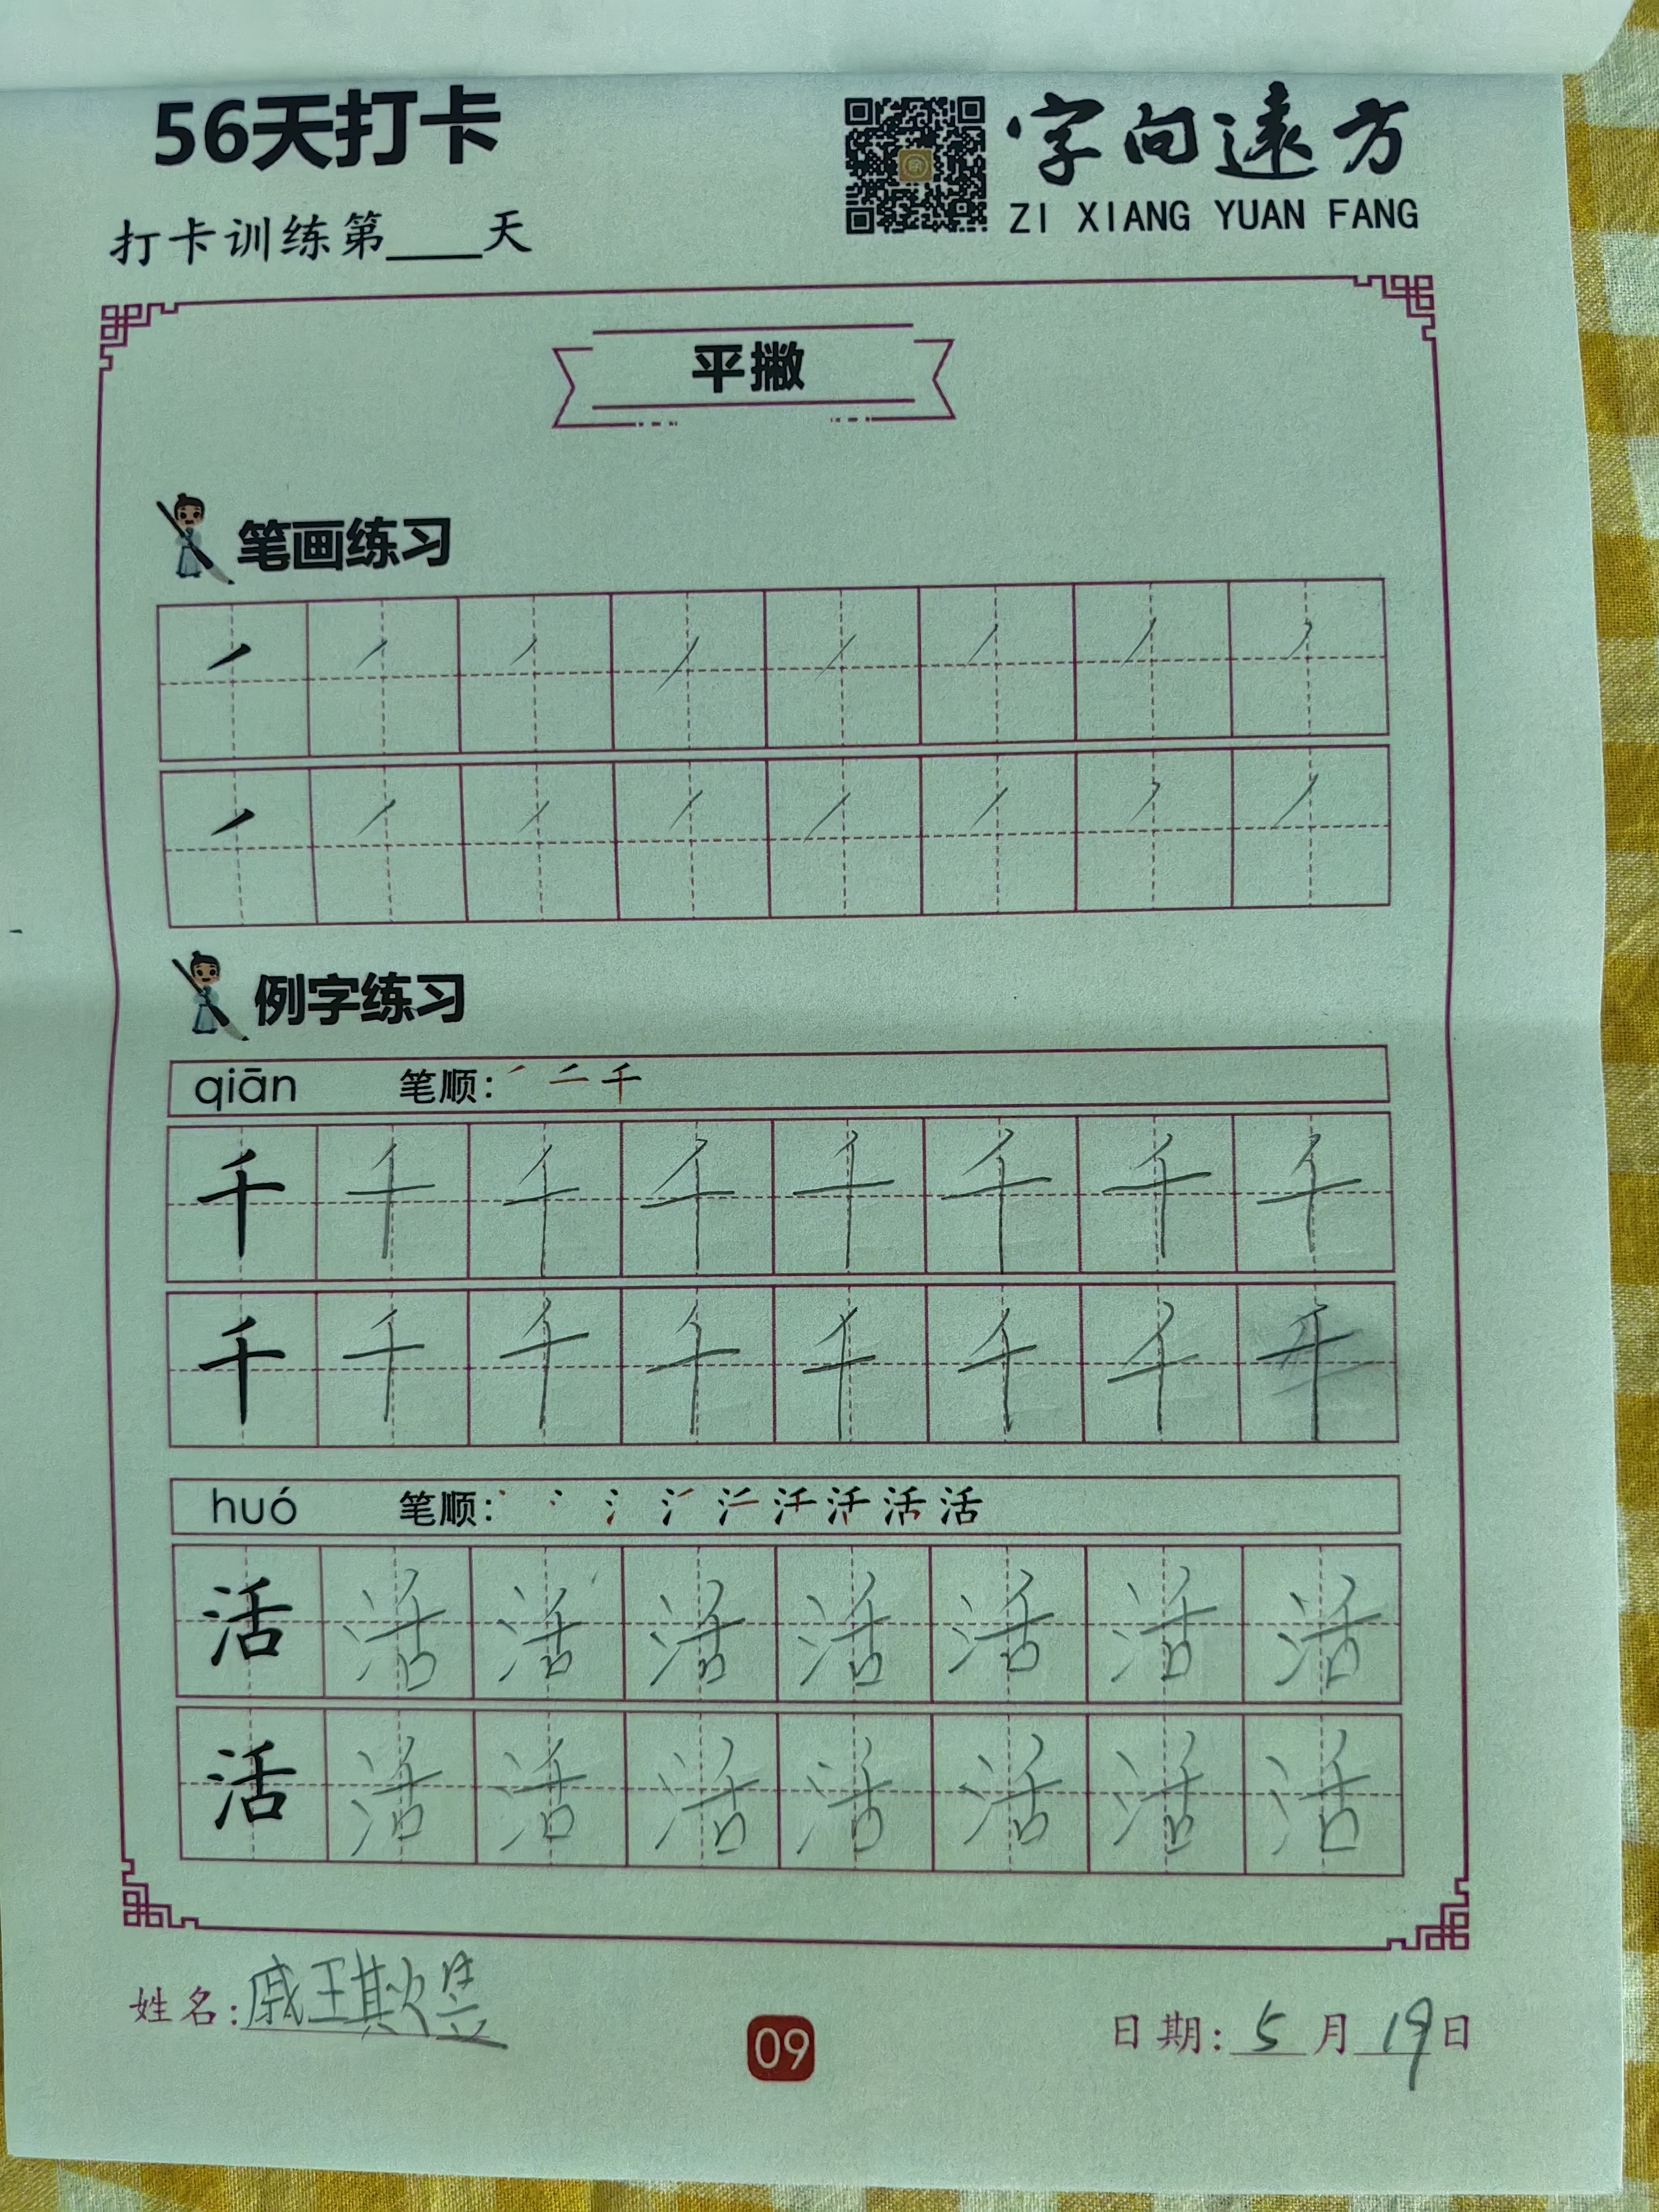 56天打卡
字向遠方
ZI XIANG YUAN FANG
打卡训练第____天
平撇
笔画练习
例字练习
qiān 笔顺: 千
千 千 千 千 千 千 千 千
千 千 千 千 千 千 千 千
huó 笔顺: 活
活 活 活 活 活 活 活 活
活 活 活 活 活 活 活 活
姓名: 戚王
09
日期: 5月19日